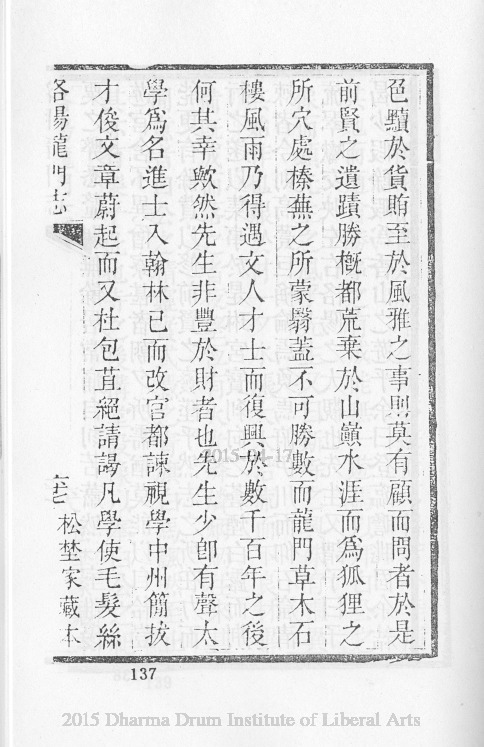 色黷於貨賄至於風雅之事則莫有顧而問者於是
前賢之遺蹟勝槪都荒棄於山巔水涯而爲狐狸之
所穴處榛蕪之所蒙翳蓋不可勝數而龍門草木石
樓風雨乃得遇文人才士而復興於數千百年之後
何其幸歟然先生非豐於財者也先生少卽有聲太
學爲名進士入翰林已而改官都諫視學中州簡拔
才俊文章蔚起而又杜包苴絕請謁凡學使毛髮絲
洛陽龍門志
松埜家藏本
137
2015-04-17
2015 Dharma Drum Institute of Liberal Arts